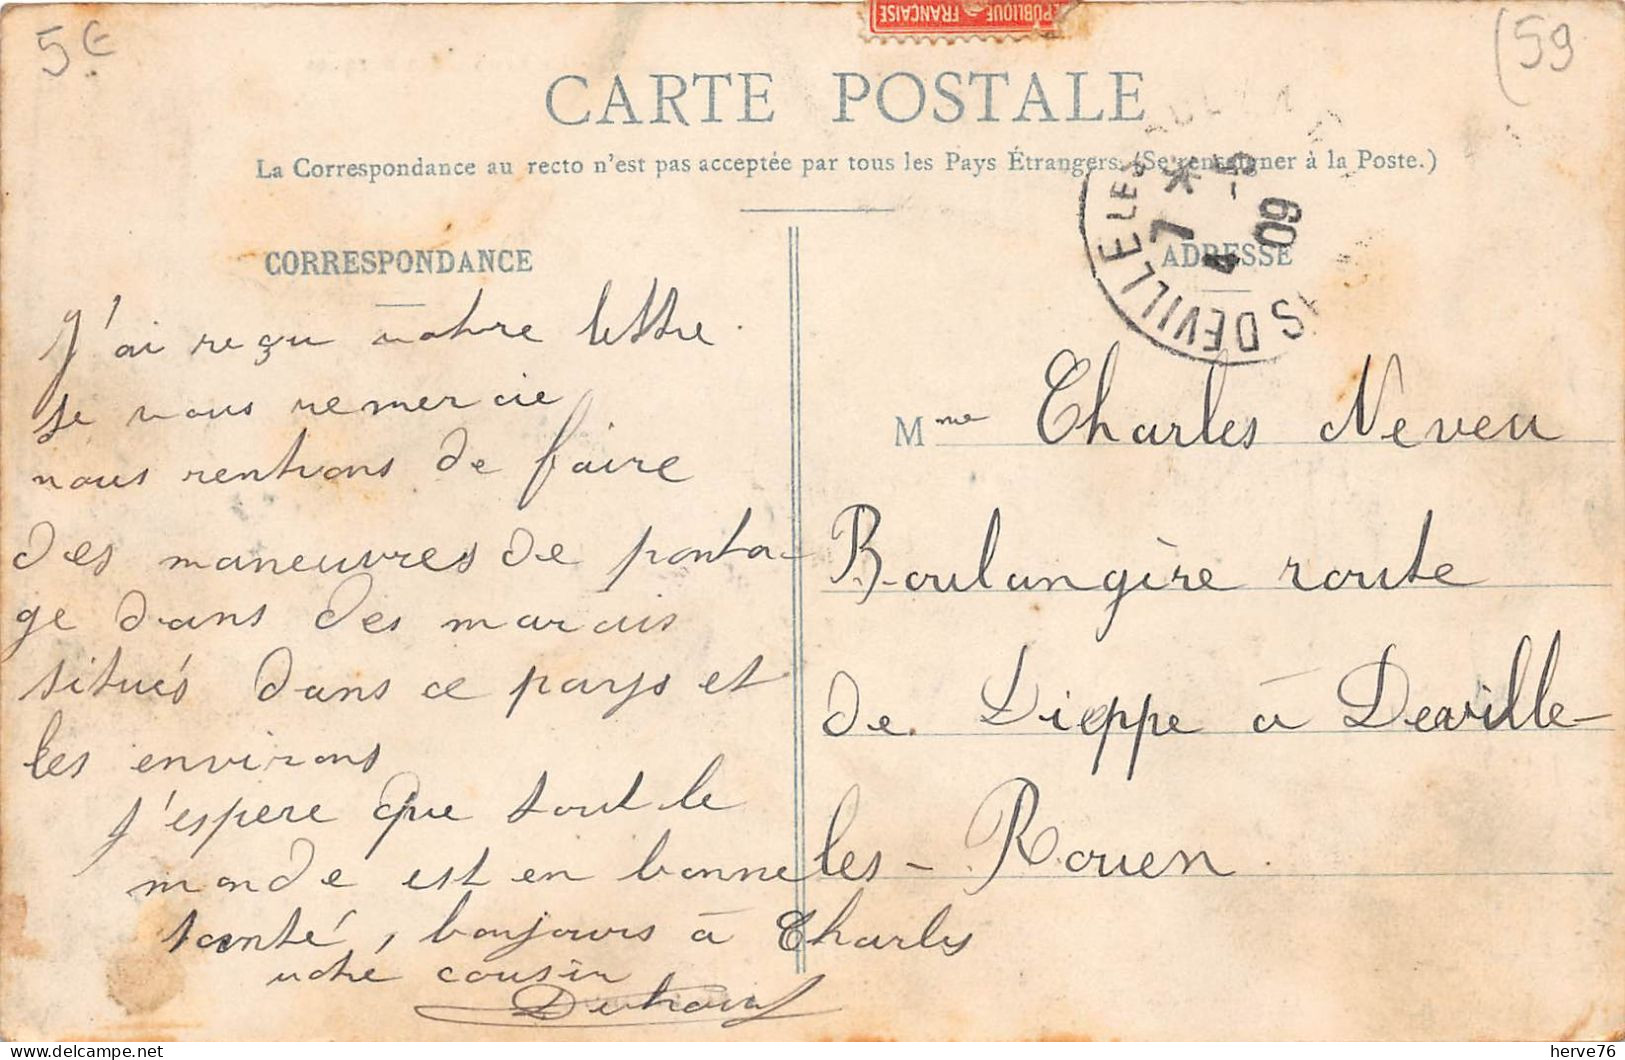 RÉPUBLIQUE FRANÇAISE
5€
(59
CARTE POSTALE
La Correspondance au recto n'est pas acceptée par tous les Pays Étrangers. (Se renseigner à la Poste.)
CORRESPONDANCE
J'ai reçu votre lettre.
Je vous remercie
nous rentrons de faire
des maneuvres de ponta-
ge dans des marais
situés dans ce pays et
les environs
j'espere que tout le
monde est en bonne
santé, bonjours à Charles
votre cousin
ADRESSE
DEVILLE LES
7 * 4 -5 09
Mme Charles Neveu
Boulangère route
de Dieppe à Deville-
les-Rouen.
herve76